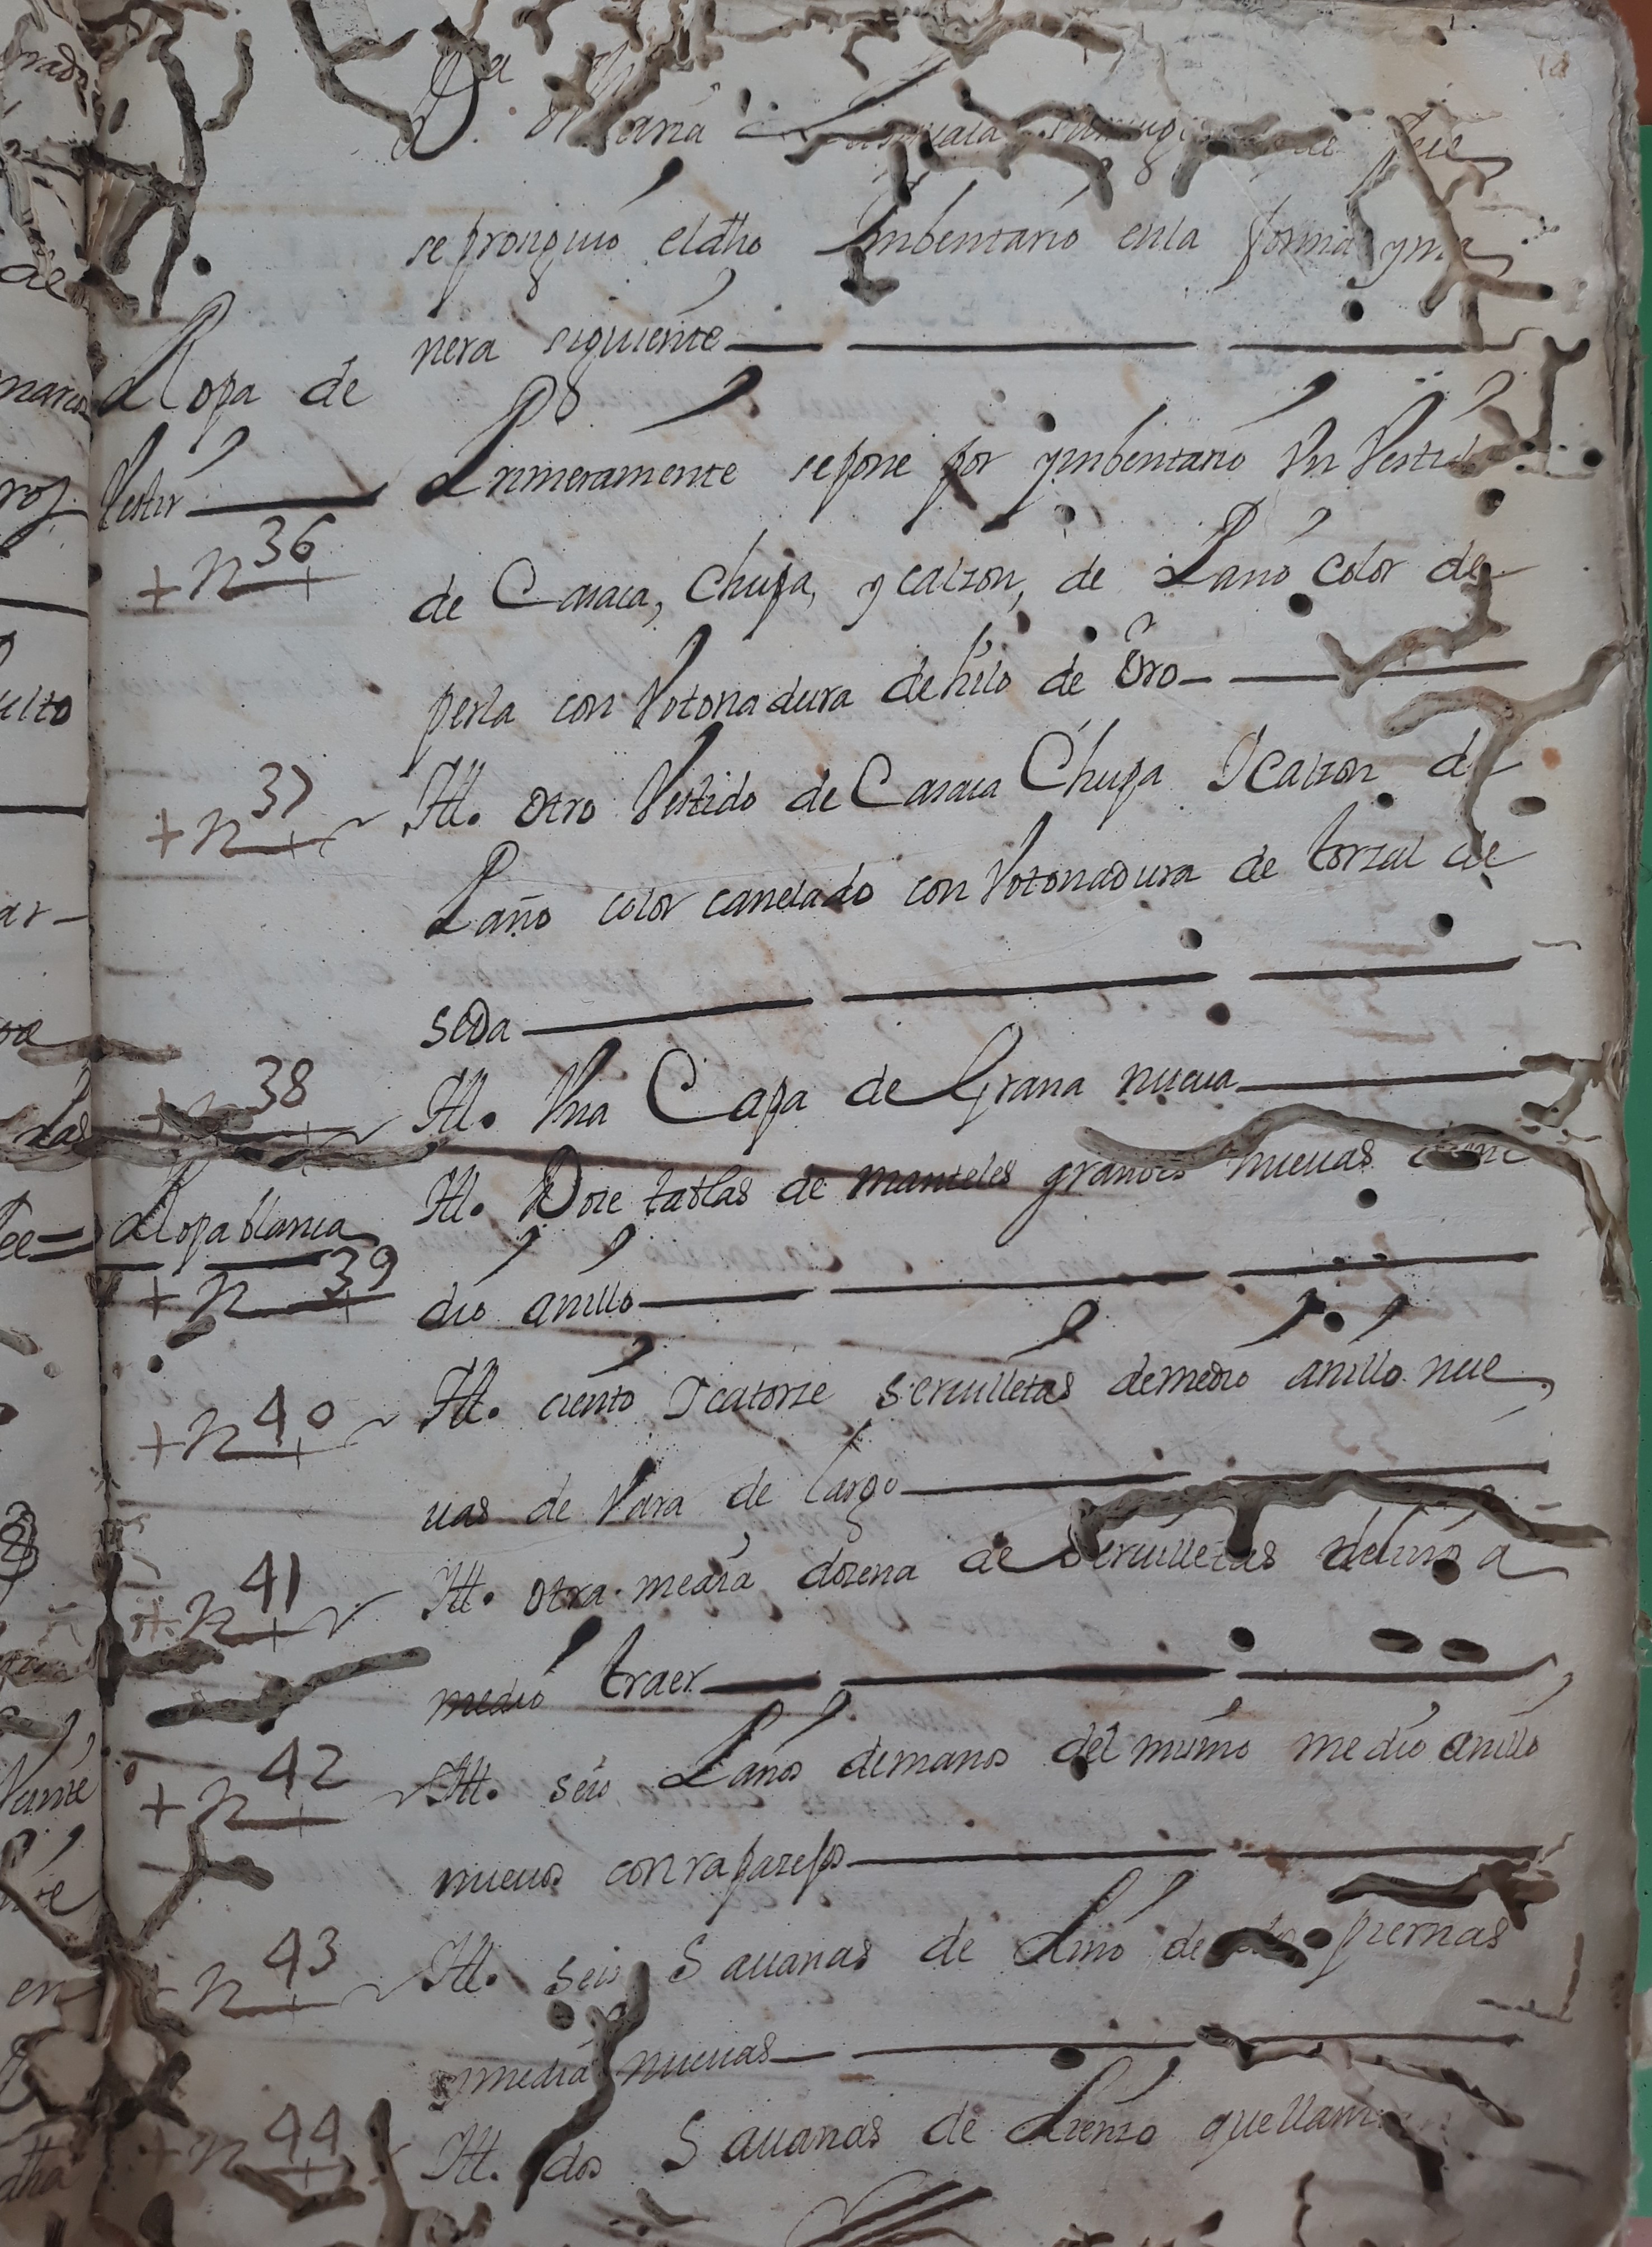 D.ª Maria
se prosiguió el dho Imbentario en la forma y ma
nera siguiente
Ropa de
Vestir
Primeramente se pone por ymbentario Un Vestido
+ n 36
de Casaca, Chupa, y calzon, de Paño color de
perla con Votonadura de hilo de Oro
+ n 37
Itt. otro Vestido de Casaca Chupa I calzon de
Paño color canelado con Votonadura de torzal de
seda
+ n 38
Itt. Vna Capa de Grana nueua
Ropa blanca
Itt. Doze tablas de manteles grandes nueuas
+ n 39
dio anillo
+ n 40
Itt. ciento I catorze seruilletas de medio anillo nue
uas de Vara de largo
+ n 41
Itt. otra media dozena de Seruilletas a
medio traer
+ n 42
Itt. seis Paños de manos del mismo medio anillo
nueuos con rapazejos
+ n 43
Itt. seis Sauanas de Lino de piernas
y media nueuas
+ n 44
Itt. dos Sauanas de Lienzo que llam